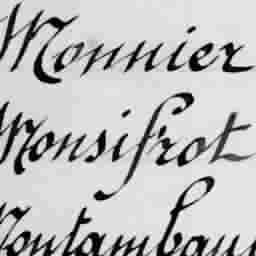 Monnier
Monsifrot
Montambau